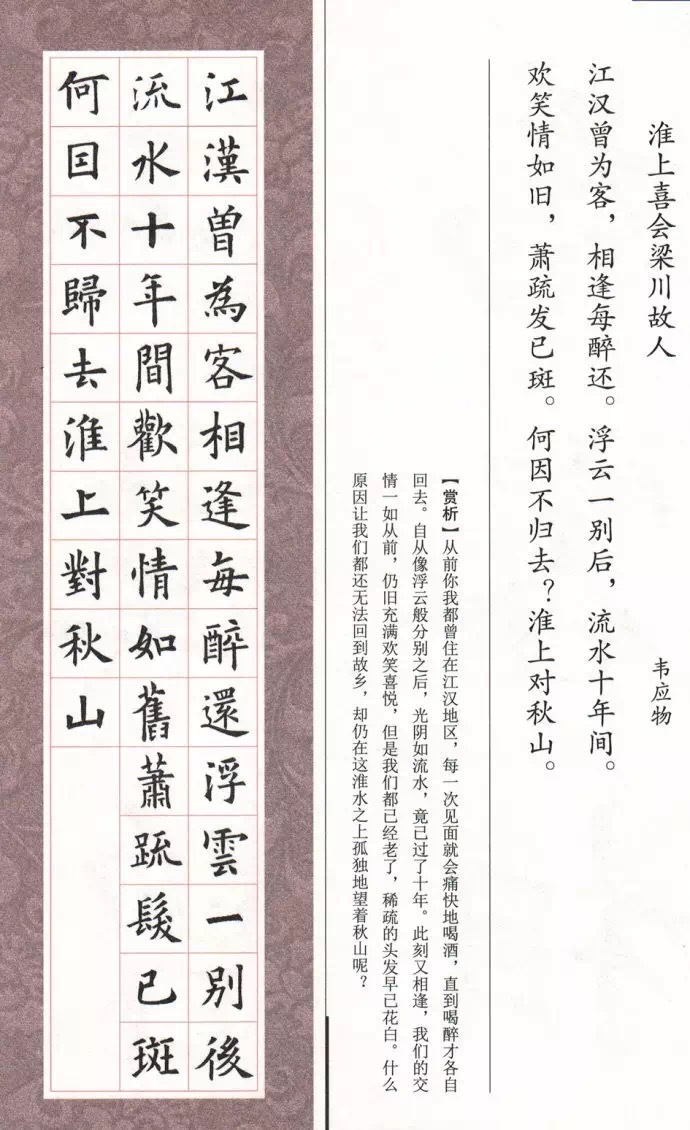 淮上喜会梁川故人
韦应物
江汉曾为客，相逢每醉还。浮云一别后，流水十年间。
欢笑情如旧，萧疏发已斑。何因不归去？淮上对秋山。
【赏析】从前你我都曾住在江汉地区，每一次见面就会痛快地喝酒，直到喝醉才各自
回去。自从像浮云般分别之后，光阴如流水，竟已过了十年。此刻又相逢，我们的交
情一如从前，仍旧充满欢笑喜悦，但是我们都已经老了，稀疏的头发早已花白。什么
原因让我们都还无法回到故乡，却仍在这淮水之上孤独地望着秋山呢？
江漢曾為客相逢每醉還浮雲一别後
流水十年間歡笑情如舊蕭疏髮已斑
何因不歸去淮上對秋山